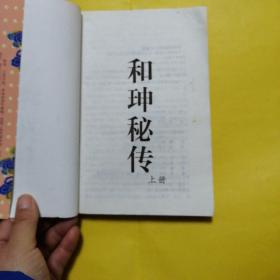 和珅秘传
上册